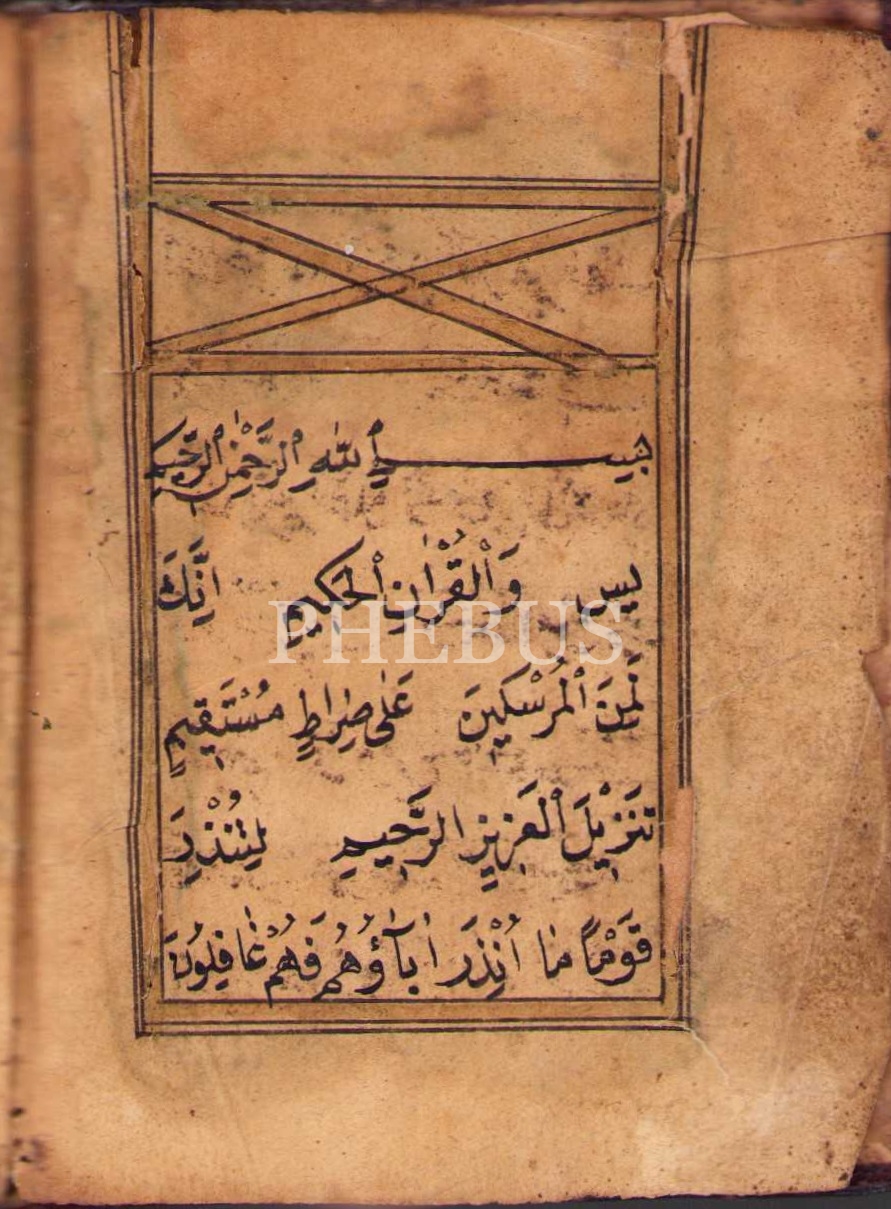 بِسْمِ ٱللّٰهِ ٱلرَّحْمٰنِ ٱلرَّحِيمِ
يس وَٱلْقُرْاٰنِ ٱلْحَكِيمِ اِنَّكَ
لَمِنَ ٱلْمُرْسَلِينَ عَلٰى صِرَاطٍ مُسْتَقِيمٍ
تَنْزِيْلَ ٱلْعَزِيزِ الرَّحِيمِ لِتُنْذِرَ
قَوْمًا مَا اُنْذِرَ اٰبَآؤُهُمْ فَهُمْ غَافِلُونَ
PHEBUS